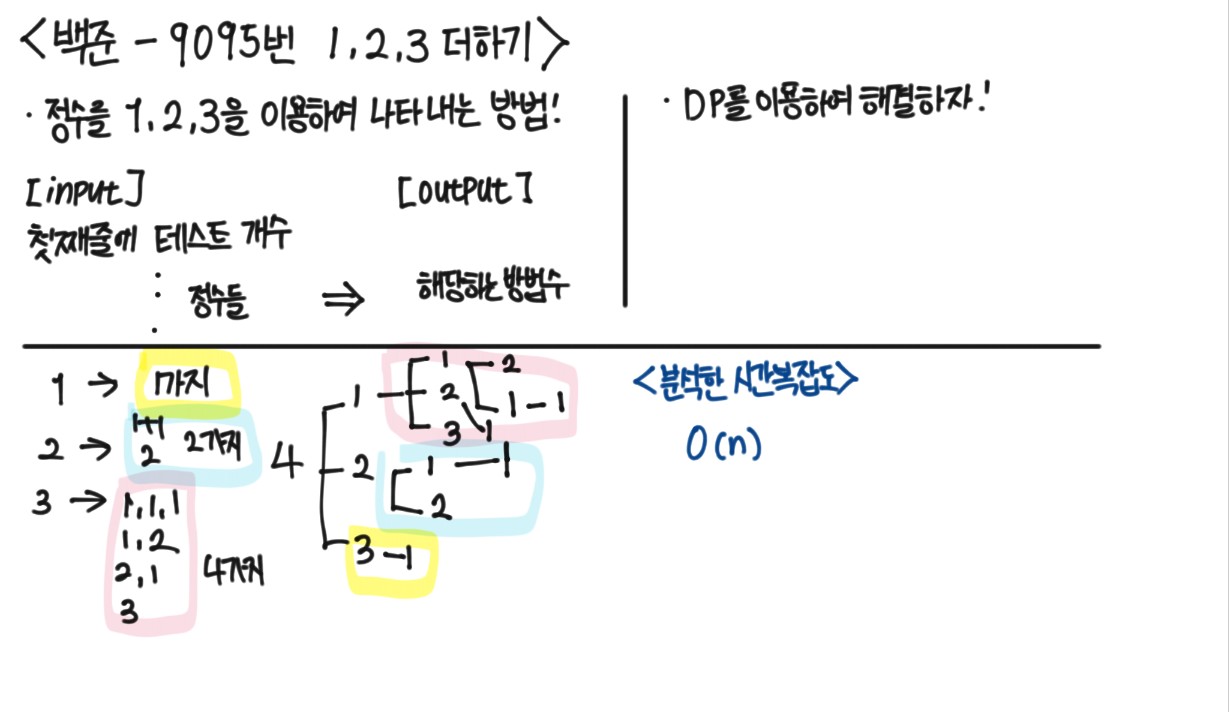 <백준 - 9095번 1,2,3 더하기>
· 정수를 1,2,3을 이용하여 나타내는 방법!
[input] [output]
첫째줄에 테스트 개수
정수들 ⇒ 해당하는 방법수
· DP를 이용하여 해결하자!
1 → 1가지
2 → 1+1
2 2가지
3 → 1,1,1
1,2
2,1 4가지
3
4
1 1 2
2 1-1
3 1
2 1-1
2
3-1
<분석한 시간복잡도>
O(n)